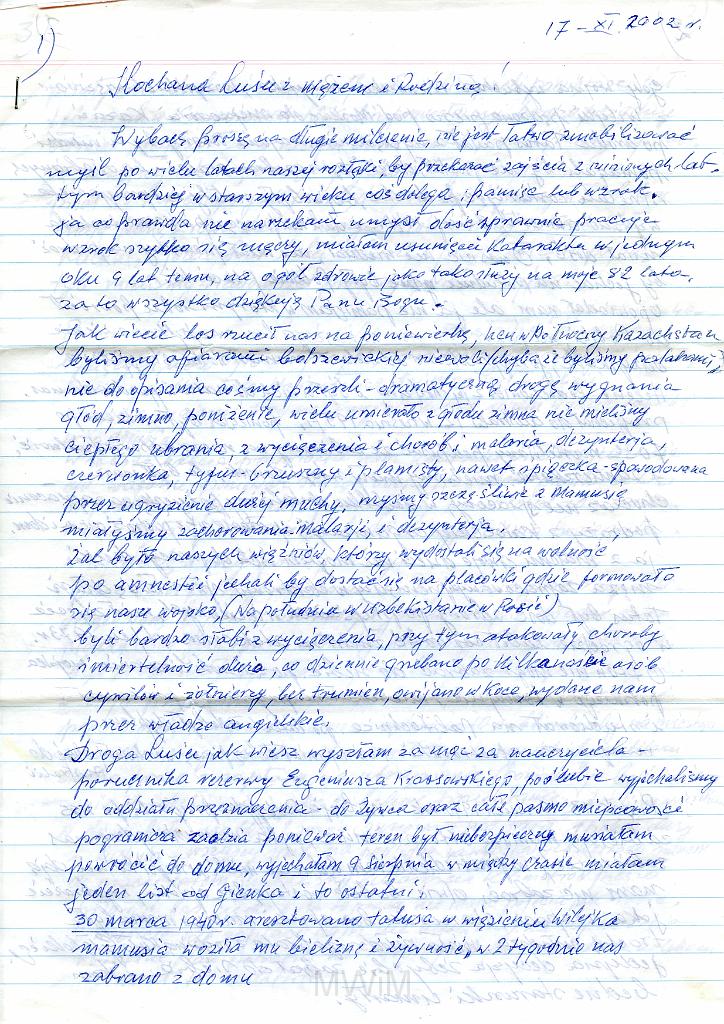 17 - XI. 2002 r.
1)
Kochana Lusiu z mężem i Rodziną!
Wybacz proszę na długie milczenie, nie jest łatwo zmobilizować
myśl po wielu latach naszej rozłąki, by przekazać zajścia z minionych lat.
tym bardziej w starszym wieku coś dolega i pamięć lub wzrok.
ja co prawda nie narzekam umysł dość sprawnie pracuje
wzrok szybko się męczy, miałam usunięcie Katarakty w jednym
oku 9 lat temu, na ogół zdrowie jako tako służy na moje 82 lata.
za to wszystko dziękuję Panu Bogu.
Jak wiecie los rzucił nas na poniewierkę, hen w Północny Kazachstan
byliśmy ofiarami bolszewickiej niewoli
nie do opisania cośmy przeszli - dramatyczną drogę wygnania
głód, zimno, poniżenie, wielu umierało z głodu zimna nie mieliśmy
ciepłego ubrania, z wycięczenia i chorób; malaria, dezynterja,
czerwonka, tyfus - brzuszny i plamisty, nawet śpiączka - spowodowana
przez ugryzienie dużej muchy, myśmy szczęśliwie z Mamusią
miałyśmy zachorowania - Malarji, i dezynterja.
Żal było naszych więźniów, którzy wydostali się na wolność
po amnestii jechali by dostać się na placówki gdzie formowało
się nasze wojsko, (Na południu w Uzbekistanie w Rosić)
byli bardzo słabi z wycięczenia, przy tym atakowały choroby
śmiertelność duża, co dziennie grzebano po Kilkanaście osób
cywilów i żołnierzy, bez trumien, owijano w Koce, wydane nam
przez władze angielskie.
Droga Lusiu jak wiesz wyszłam za mąż za nauczyciela -
porucznika rezerwy Eugeniusza Krassowskiego, po ślubie wyjechaliśmy
do oddziału przeznaczenia - do Żywca oraz całe pasmo miejscowość
pogranicza zaolzia ponieważ teren był niebezpieczny musiałam
powrócić do domu, wyjechałam 9 sierpnia w między czasie miałam
jeden list od Gienka i to ostatni.
30 marca 1940 r. aresztowano tatusia w więzieniu Wilejka
mamusia woziła mu bieliznę i żywność, w 2 tygodnie nas
zabrano z domu
MWiM